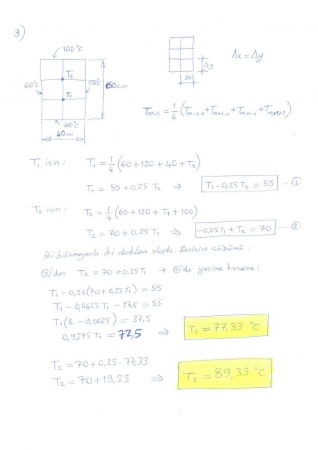 3)
100°C
Δx = Δy
Δy
Δx
60°C
T2
120°C
60cm
T1
40°C
40cm
Tm,n = 1/4 (Tm-1,n + Tm+1,n + Tm,n+1 + Tm,n-1)
T1 için : T1 = 1/4 (60+120+40+T2)
T1 = 55 + 0,25 T2 ⇒ T1 - 0,25 T2 = 55 ... ①
T2 için : T2 = 1/4 (60+120+T1+100)
T2 = 70 + 0,25 T1 ⇒ -0,25 T1 + T2 = 70 ... ②
iki bilinmeyenli iki denklem oluştu. Bunların çözümü :
②'den T2 = 70 + 0,25 T1 → ①'de yerine konursa :
T1 - 0,25(70 + 0,25 T1) = 55
T1 - 0,0625 T1 - 17,5 = 55
T1 (1 - 0,0625) = 37,5
0,9375 T1 = 72,5 ⇒ T1 = 77,33 °C
T2 = 70 + 0,25 · 77,33
T2 = 70 + 19,33 ⇒ T2 = 89,33 °C